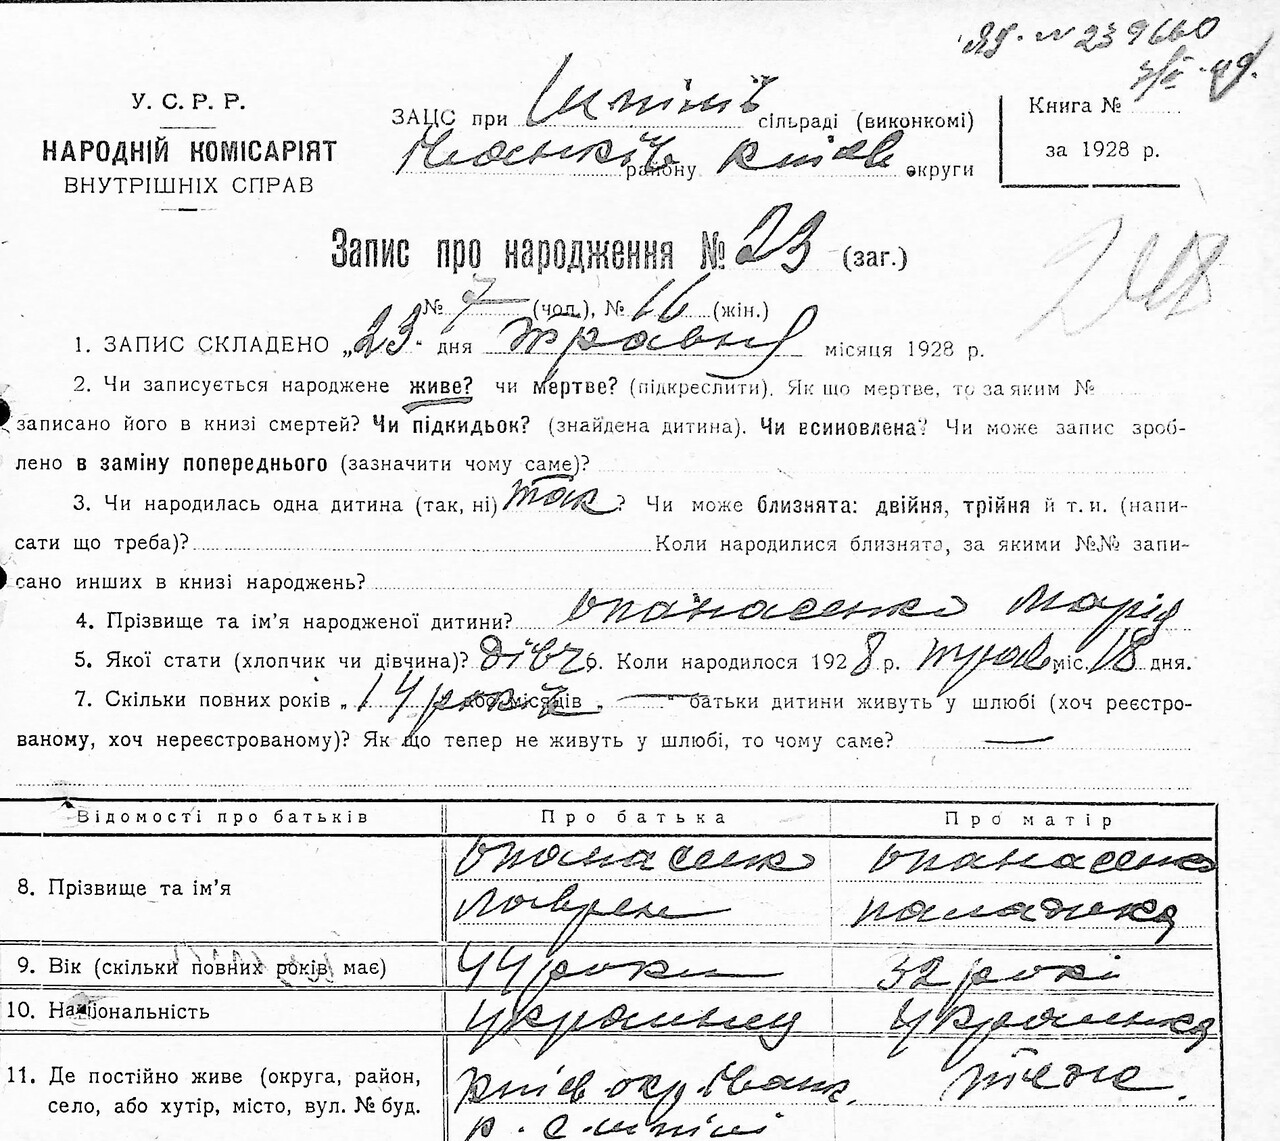 ЯЗ. № 239660
У. С. Р. Р.
НАРОДНІЙ КОМІСАРІЯТ
ВНУТРІШНІХ СПРАВ
ЗАЦС при сільраді (виконкомі)
району Київ округи
Книга №
за 1928 р.
Запис про народження № 23 (заг.)
№ 7 (чол.), № 16 (жін.)
1. ЗАПИС СКЛАДЕНО „23" дня Травня місяця 1928 р.
2. Чи записується народжене живе? чи мертве? (підкреслити). Як що мертве, то за яким №
записано його в книзі смертей? Чи підкидьок? (знайдена дитина). Чи всиновлена? Чи може запис зроб-
лено в заміну попереднього (зазначити чому саме)?
3. Чи народилась одна дитина (так, ні) так? Чи може близнята: двійня, трійня й т. и. (напи-
сати що треба)? Коли народилися близнята, за якими №№ запи-
сано инших в книзі народжень?
4. Прізвище та ім'я народженої дитини? Опанасенко Марія
5. Якої стати (хлопчик чи дівчина)? дівч 6. Коли народилося 1928 р. трав міс. 18 дня.
7. Скільки повних років „14 років або місяців „—" батьки дитини живуть у шлюбі (хоч реєстро-
ваному, хоч нереєстрованому)? Як що тепер не живуть у шлюбі, то чому саме? —
Відомості про батьків Про батька Про матір
8. Прізвище та ім'я Опанасенко Опанасенко
Лаврен Палажка
9. Вік (скільки повних років має) 44 роки 32 рокі
10. Національність Українец Українка
11. Де постійно живе (округа, район, Київ окр. теж.
село, або хутір, місто, вул. № буд. р. с.